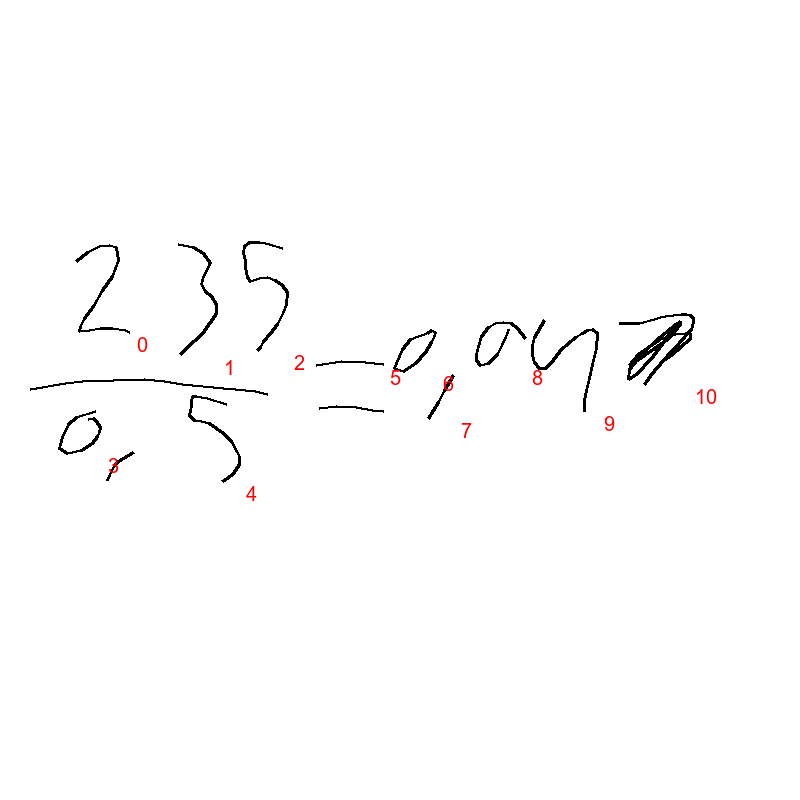 235
0,5
= 0,04
0 1 2 3 4 5 6 7 8 9 10